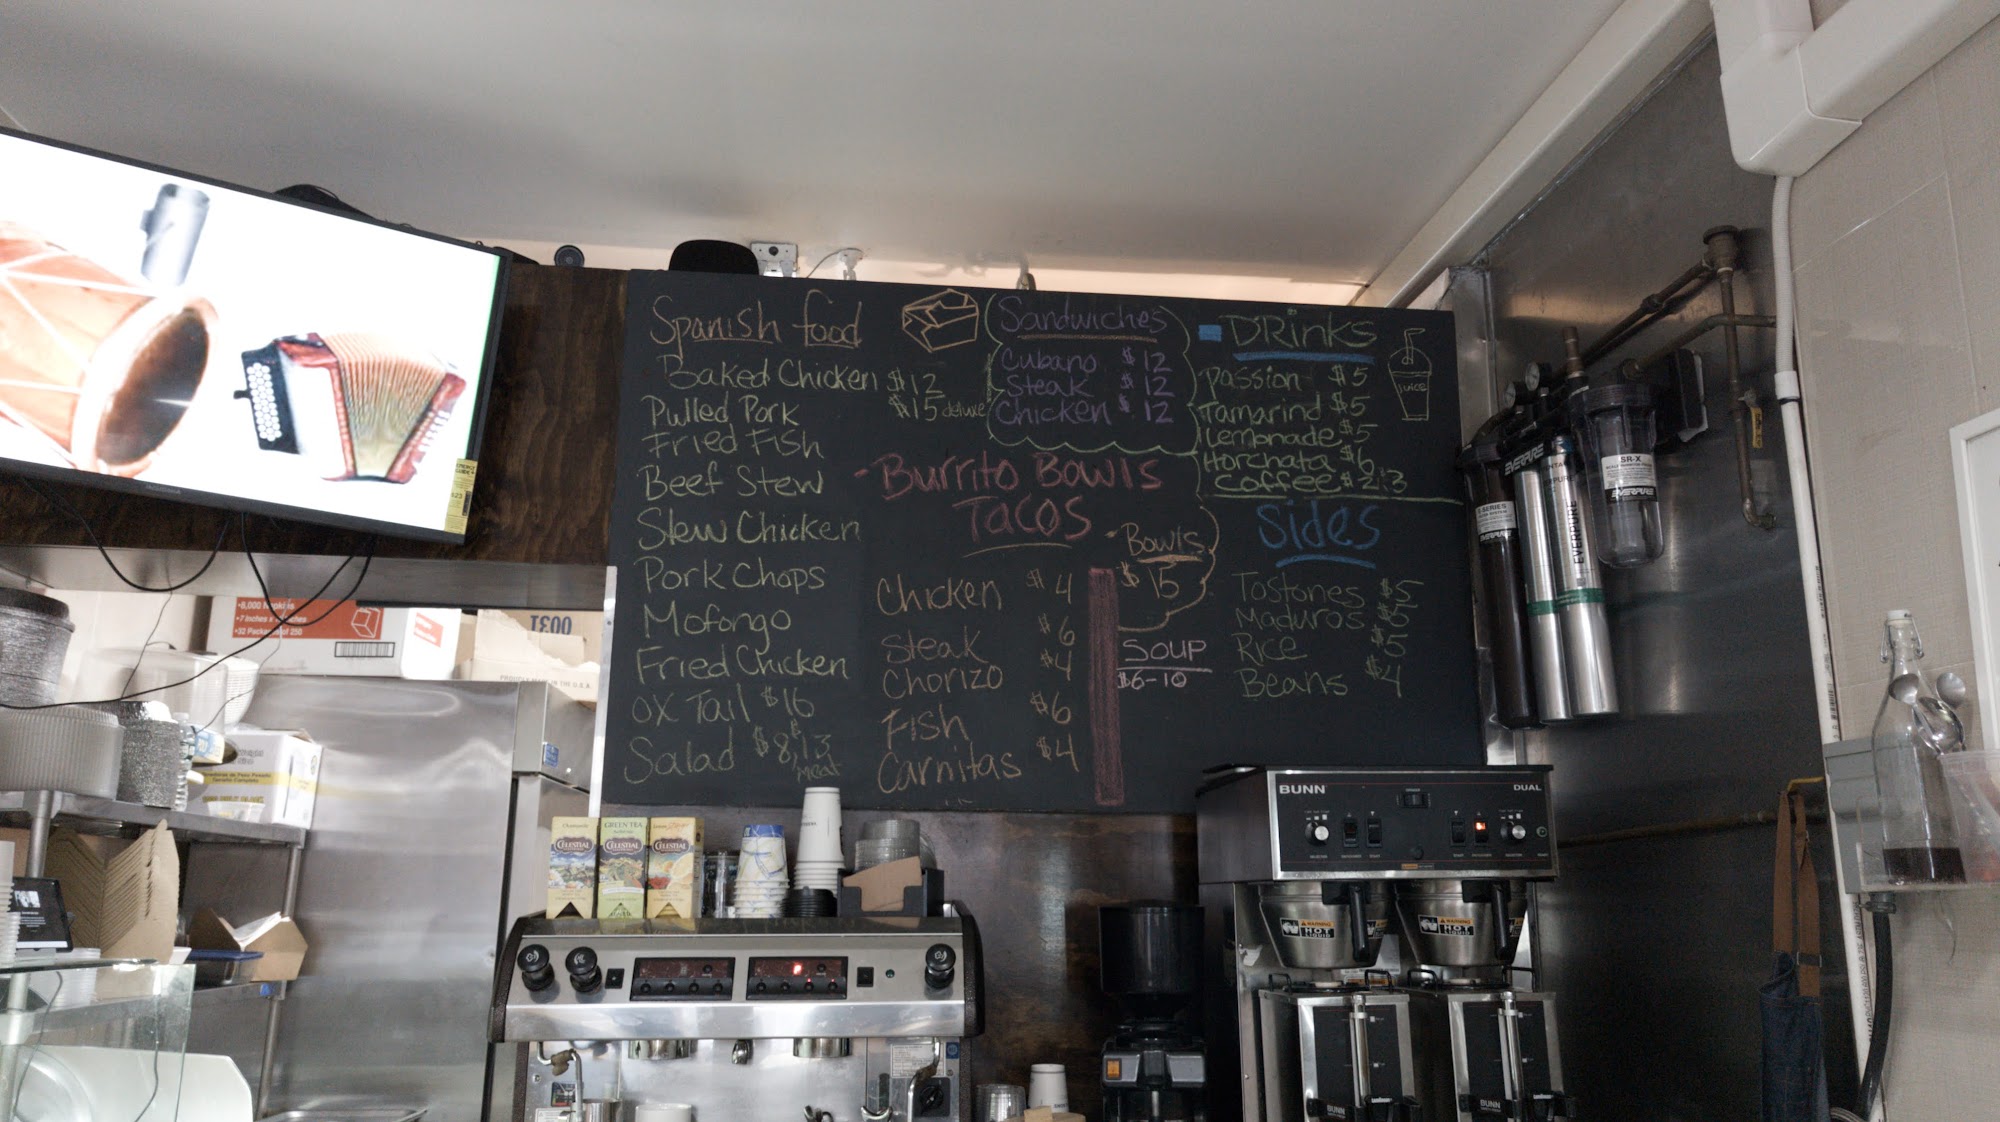 Spanish food
Baked Chicken $12
$15 deluxe
Pulled Pork
Fried Fish
Beef Stew
Stew Chicken
Pork Chops
Mofongo
Fried Chicken
OX Tail $16
Salad $8, $13
Meat
Sandwiches
Cubano $12
Steak $12
Chicken $12
-Burrito Bowls
Tacos
Chicken $4
Steak $6
Chorizo $4
Fish $6
Carnitas $4
-Bowls
$15
SOUP
$6-10
DRinks
Passion $5
Tamarind $5
Lemonade $5
Horchata $6
Coffee $2
JUICE
Sides
Tostones $5
Maduros $5
Rice $5
Beans $4
•8,000 Napkins
•32 Packs of 250
0031
PROUDLY MADE IN THE U.S.A.
CELESTIAL
GREEN TEA
CELESTIAL
CELESTIAL
BUNN
DUAL
WARNING
HOT
LIQUID
WARNING
HOT
LIQUID
BUNN
BUNN
EVERPURE
EVERPURE
SR-X
EVERPURE